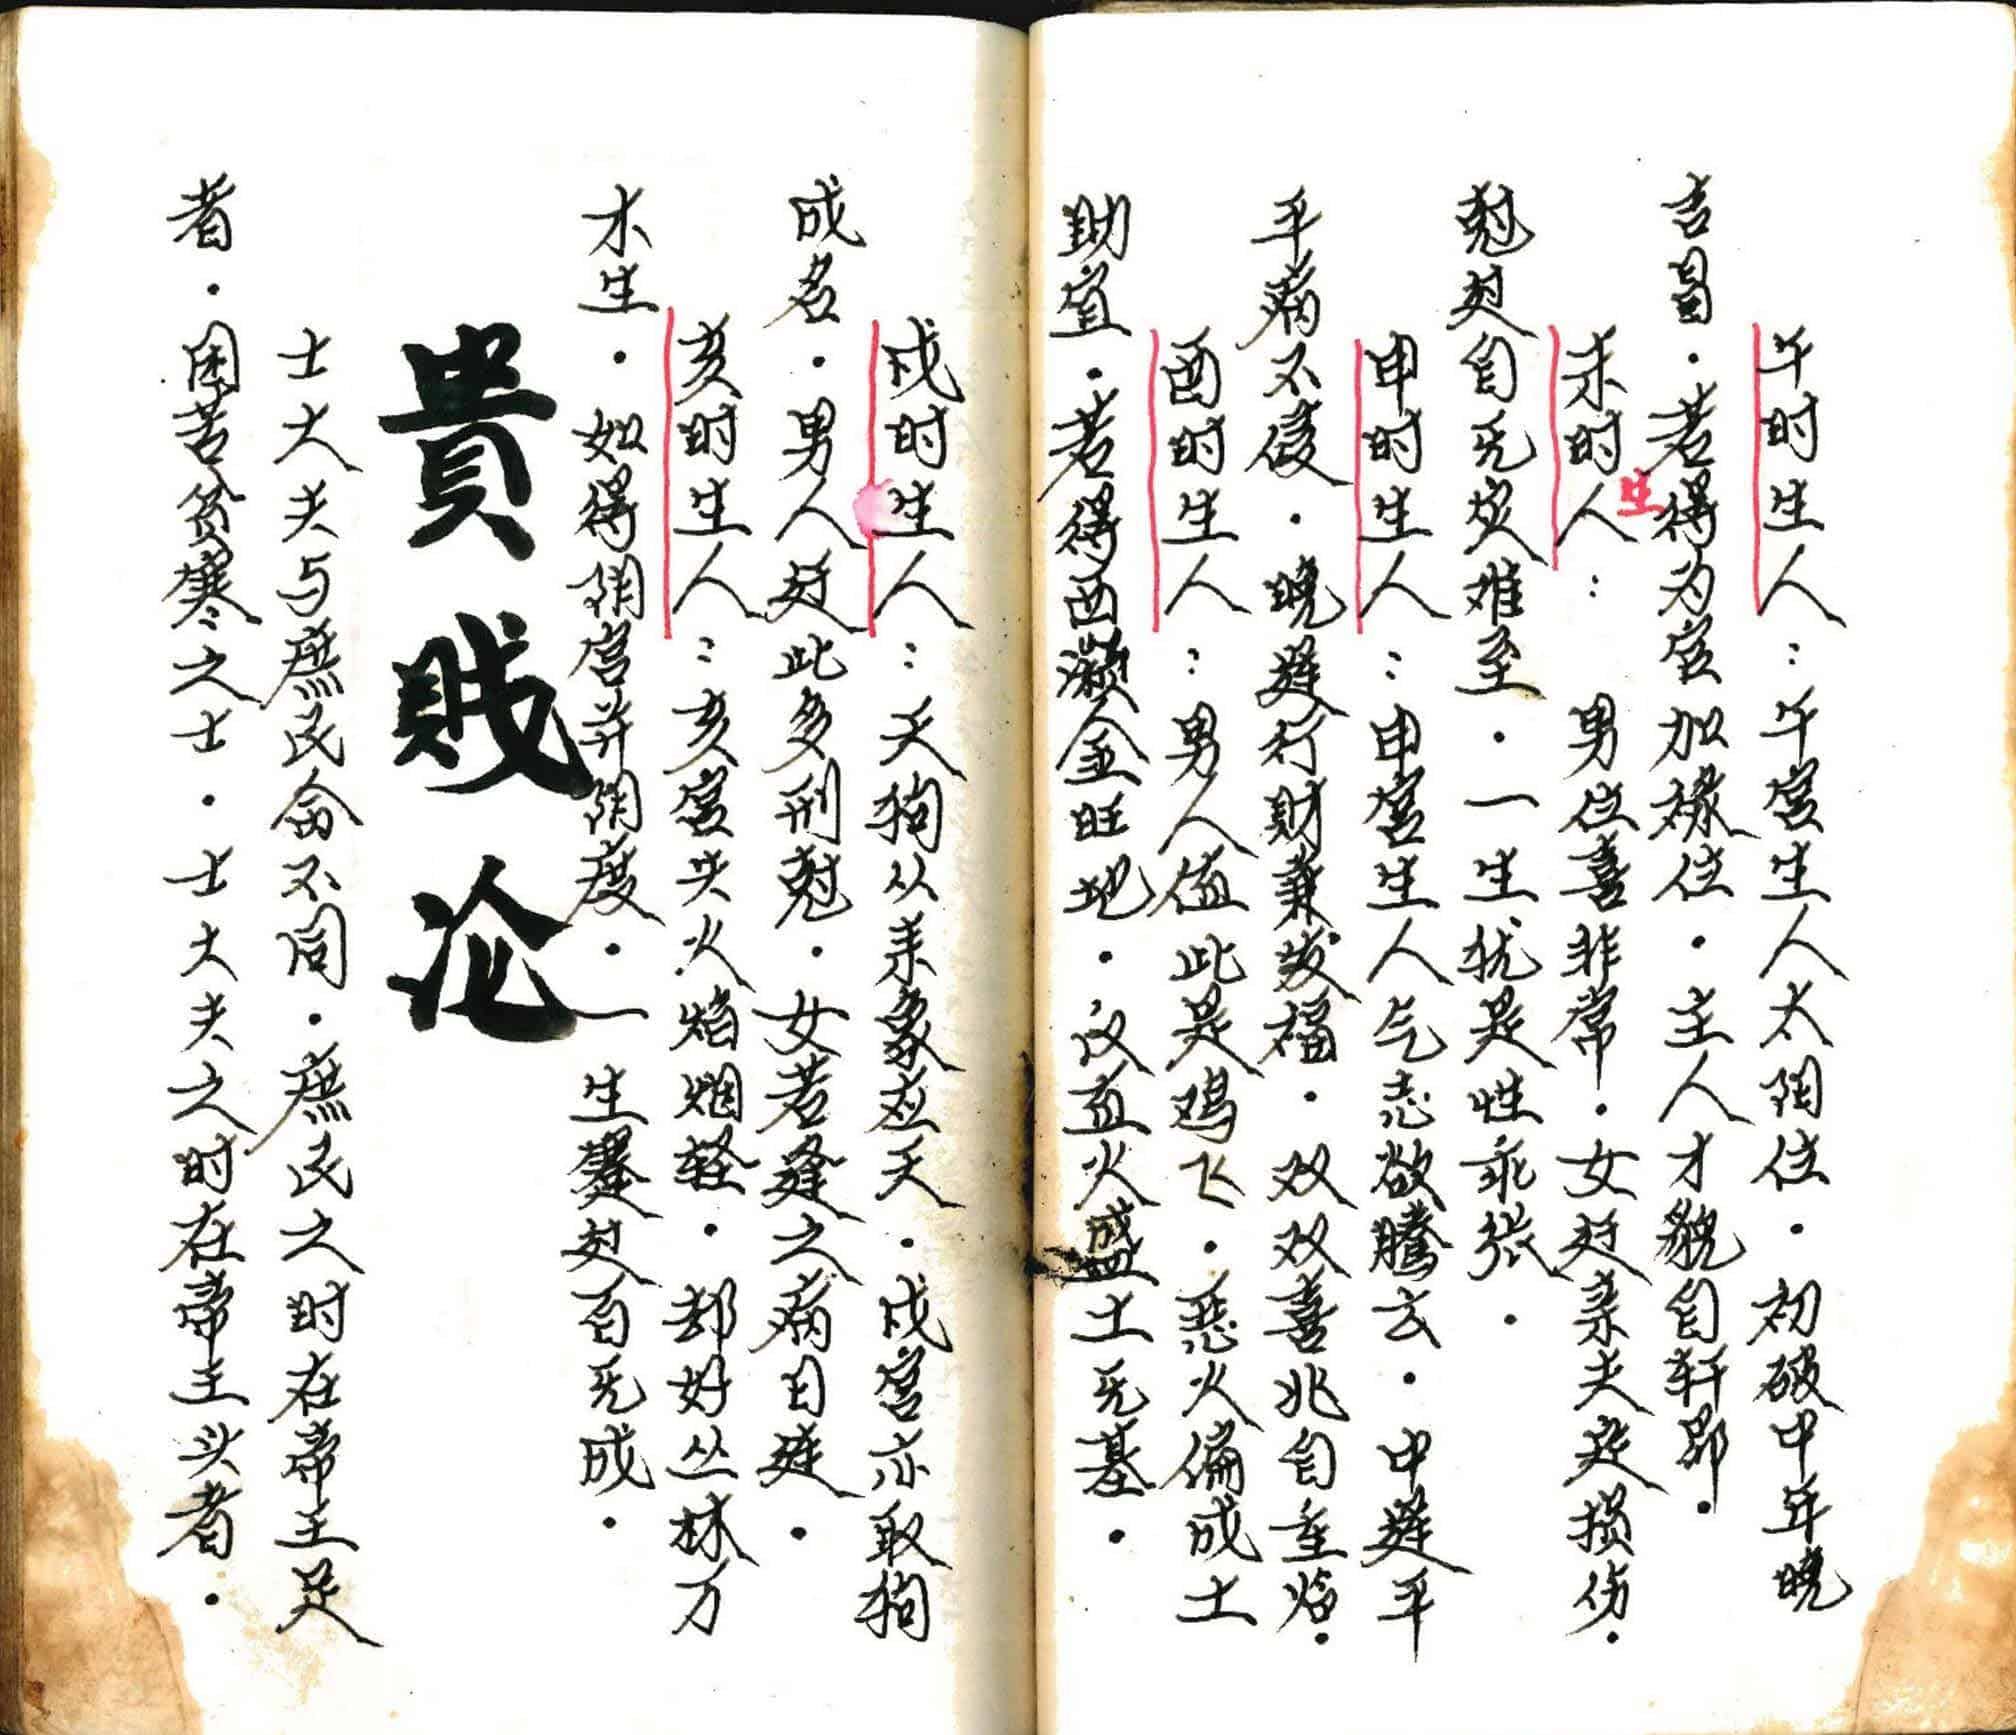 午时生人：午宫生人太阳位．初破中年晚
吉昌．若得为官加禄位．主人才貌自轩昂．
未时生人：男位喜非常．女赶亲夫定损伤．
尅过自无灾难至．一生犹是性乖张．
申时生人：申宫生人气志欲腾云．中逢平
平病不侵．晚逢行财兼发福．双双喜兆自重焰．
酉时生人：男人值此是鸡飞．恶火偏成土
助宜．若得西濒金旺地．又益火盛土无基．
戌时生人：天狗从来象应天．戌宫亦取狗
成名．男人赶此多刑尅．女若逢之病日延．
亥时生人：亥宫失火焰烟轻．却好丛林万
木生．如得阴宫并阴度．一生蹇过百无成．
貴贱论
士大夫与庶民命不同．庶民之时在帝王足
者．困苦贫寒之士．士大夫之时在帝王头者．